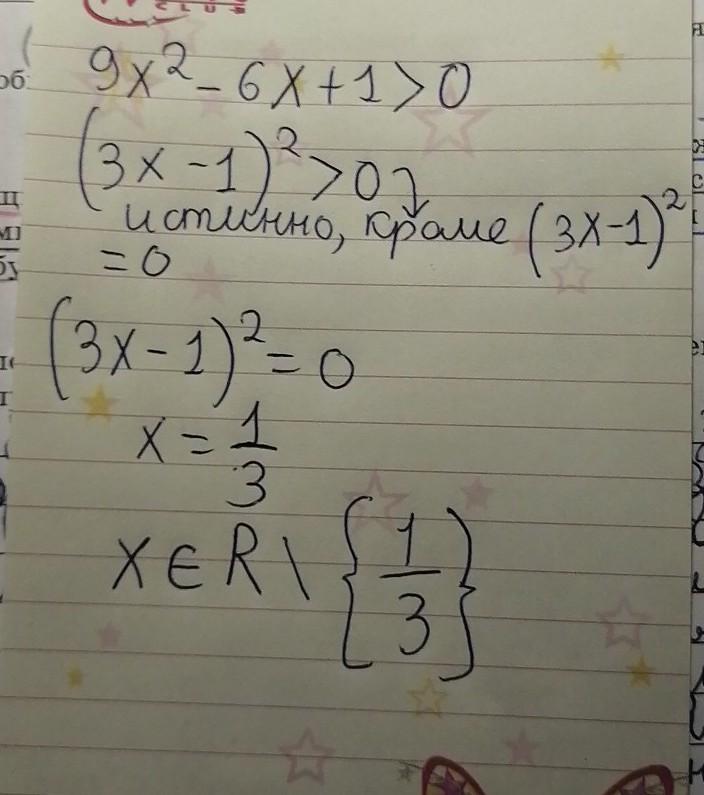 CLUB
9x² - 6x + 1 > 0
(3x - 1)² > 0
истинно, кроме (3x-1)²
= 0
(3x - 1)² = 0
x = 1/3
x ∈ R \ {1/3}